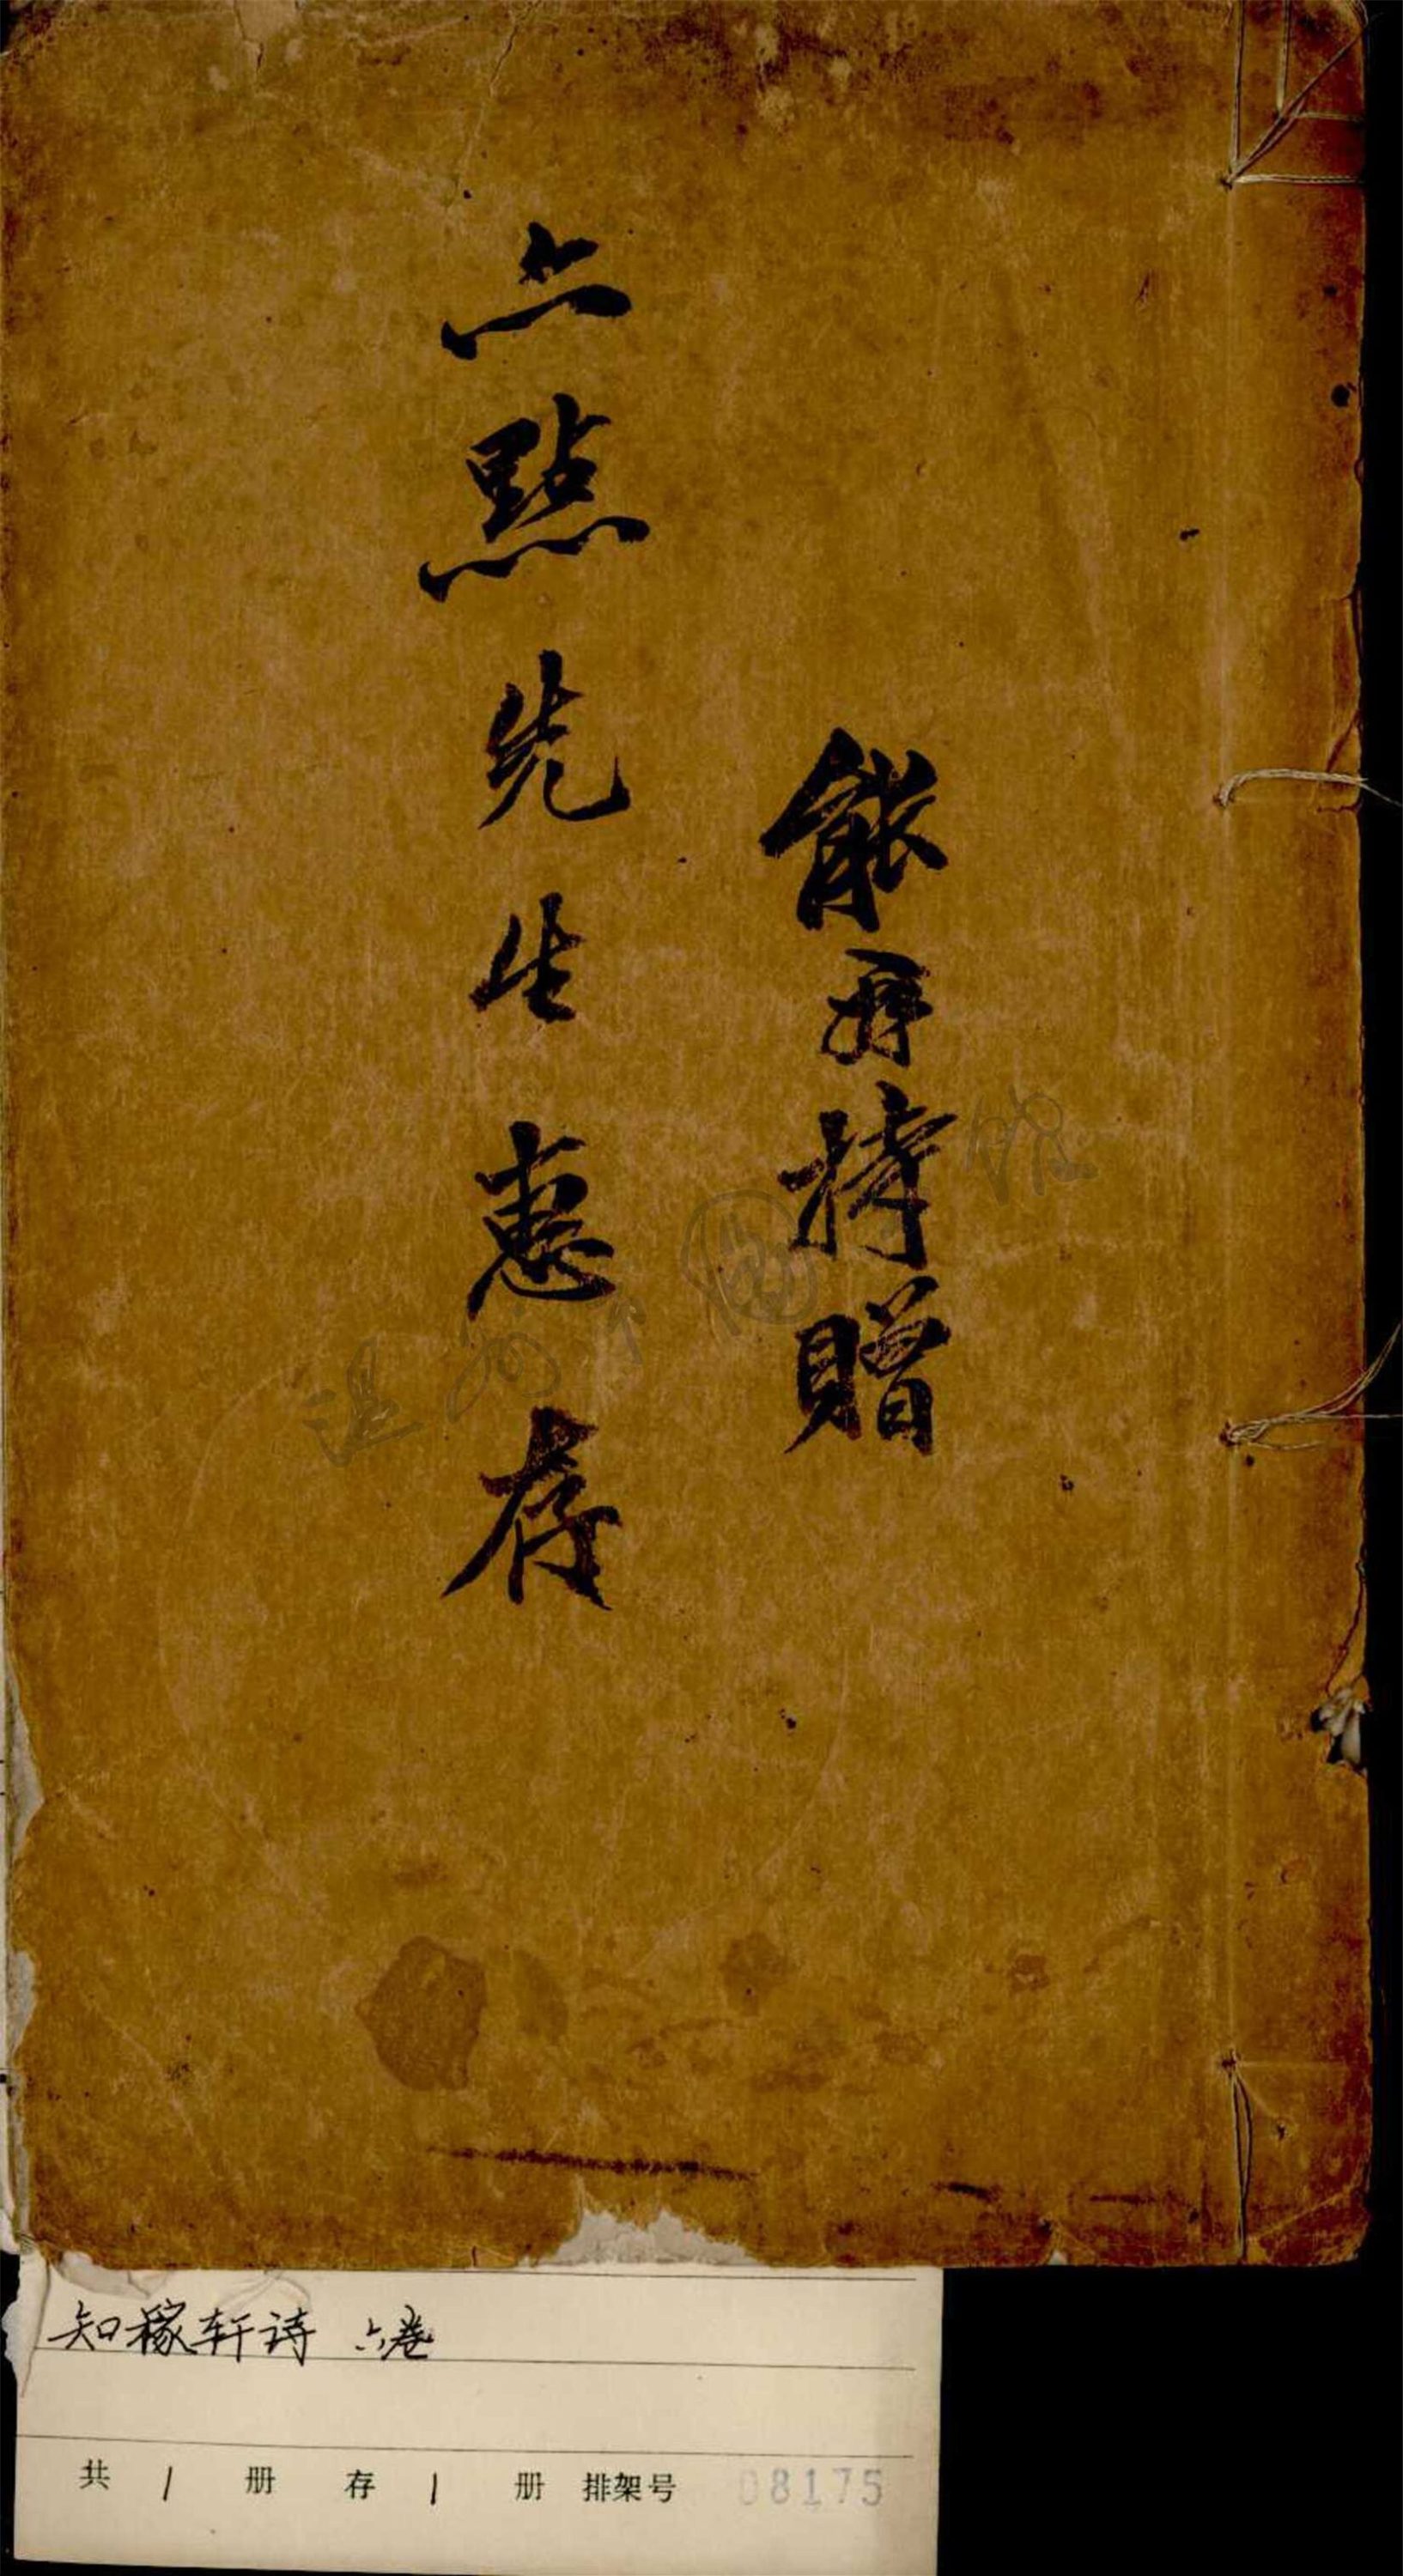 持贈
點先生惠存
知稼轩诗 六卷
共 1 册 存 1 册 排架号 08175